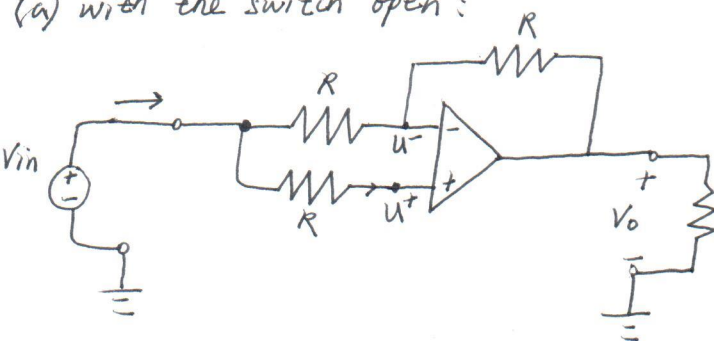 (a) with the switch open:
R
R
Vin
+
-
U-
-
+
R
U+
+
Vo
-